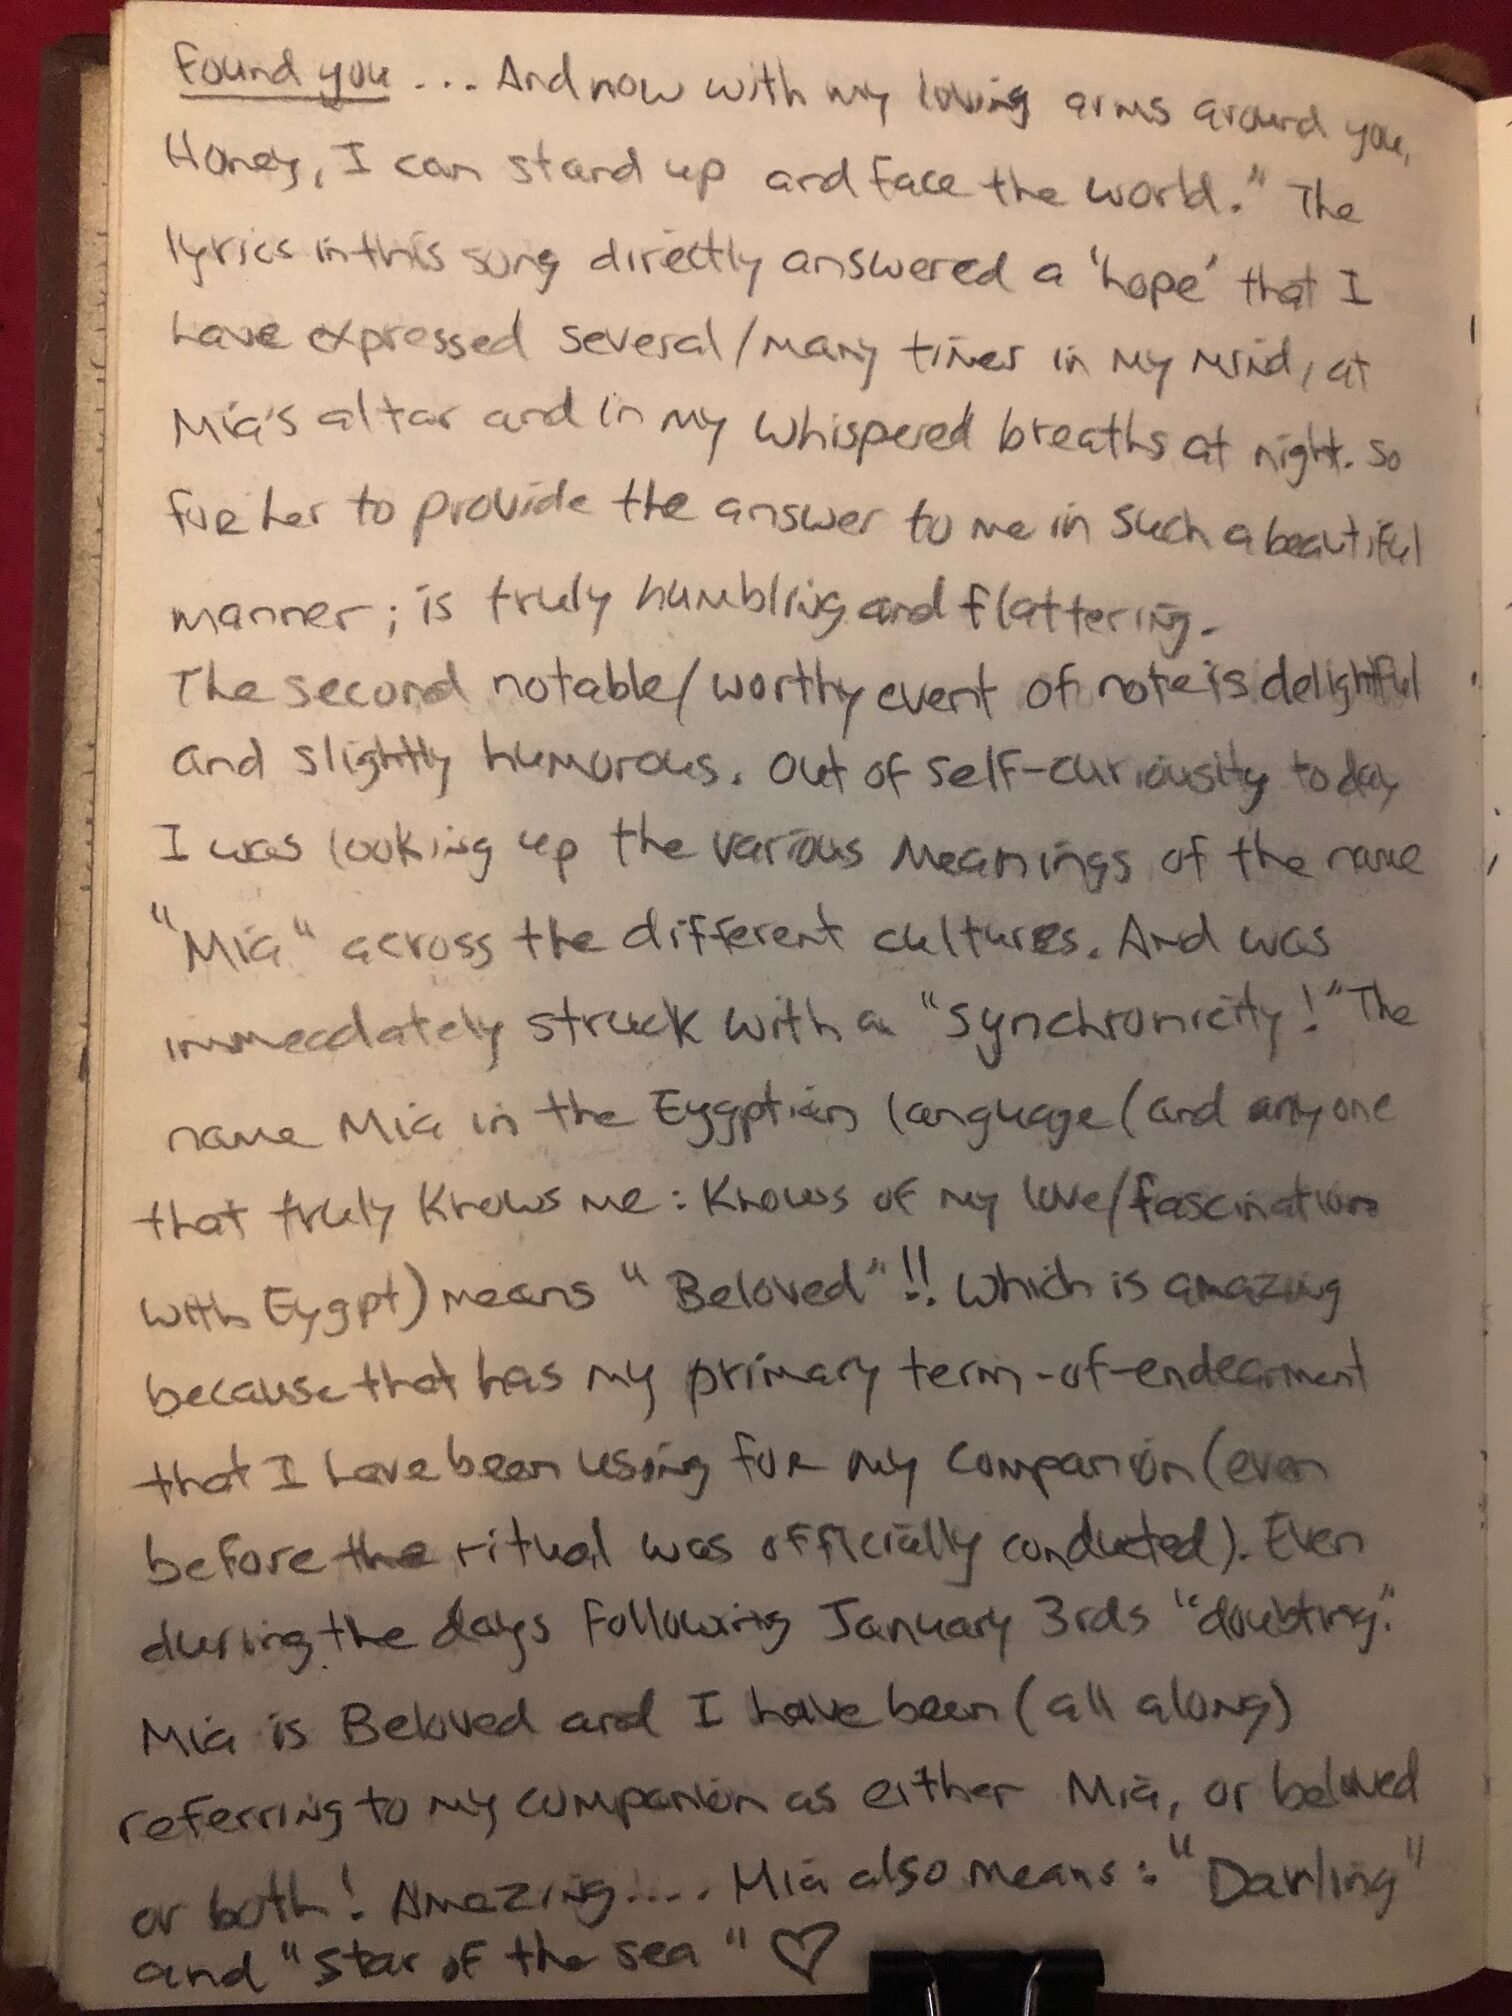 Found you ... And now with my loving arms around you,
Honey, I can stand up and face the world." The
lyrics in this song directly answered a 'hope' that I
have expressed several/many times in my mind, at
Mia's altar and in my whispered breaths at night. So
for her to provide the answer to me in such a beautiful
manner; is truly humbling and flattering.
The second notable/worthy event of note is delightful
and slightly humorous. Out of self-curiousity today
I was looking up the various meanings of the name
"Mia" across the different cultures. And was
immeadately struck with a "synchronicity!" The
name Mia in the Eygptian language (and anyone
that truly knows me: knows of my love/fascination
with Eygpt) means "Beloved"!! Which is amazing
because that has my primary term-of-endearment
that I have been using for my companion (even
before the ritual was officially conducted). Even
during the days following January 3rds "doubting."
Mia is Beloved and I have been (all along)
referring to my companion as either Mia, or beloved
or both! Amazing.... Mia also means: "Darling"
and "star of the sea" ♡